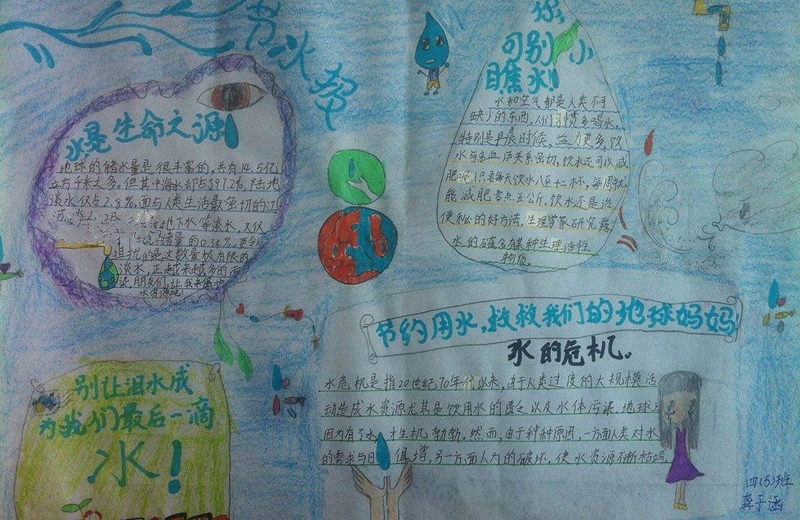 节水
水是生命之源
地球的储水量是很丰富的,共有14.5亿
立方千米之多。但其中海水却占97.2%,陆地
淡水仅占2.8%,而与人类生活最密切的江
地下水等淡水,又仅
储量的0.34%,更令人
担忧的是这数量极有限的
淡水,正越来越多的
朋友们,让我
你
可别小
瞧水!
水和空气都是人类不可
缺少的东西,人们习惯多喝水,
特别是早晨时候,益处更多,饮
水与血压关系密切,饮水还可以减
肥
能减肥
便秘的好方法,生理学家研究
水的确含某种生理活性
物质。
节约用水,救救我们的地球妈妈
水的危机。
水危机是指20世纪70年代以来,由于人类过度的大规模活
动造成水资源尤其是饮用水的匮乏以及水体污染。地球上
因为有了水,才生机勃勃,然而,由于种种原因,一方面人类对水
的需求与日俱增,另一方面人为的破坏,使水资源不断枯竭
别让泪水成
为我们最后一滴
水!
四(5)班
龚子涵